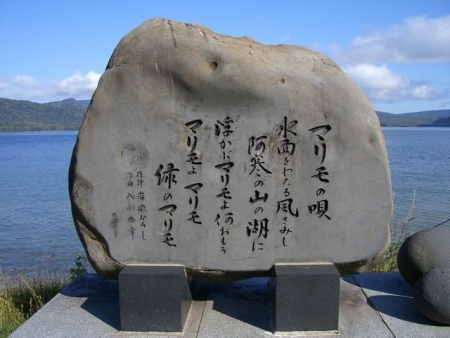 マリモの唄
水面をわたる風さみし
阿寒の山の湖に
浮かぶマリモよ何おもう
マリモよマリモ
緑のマリモ
作詩 岩瀬ひろし
作曲 八洲秀章